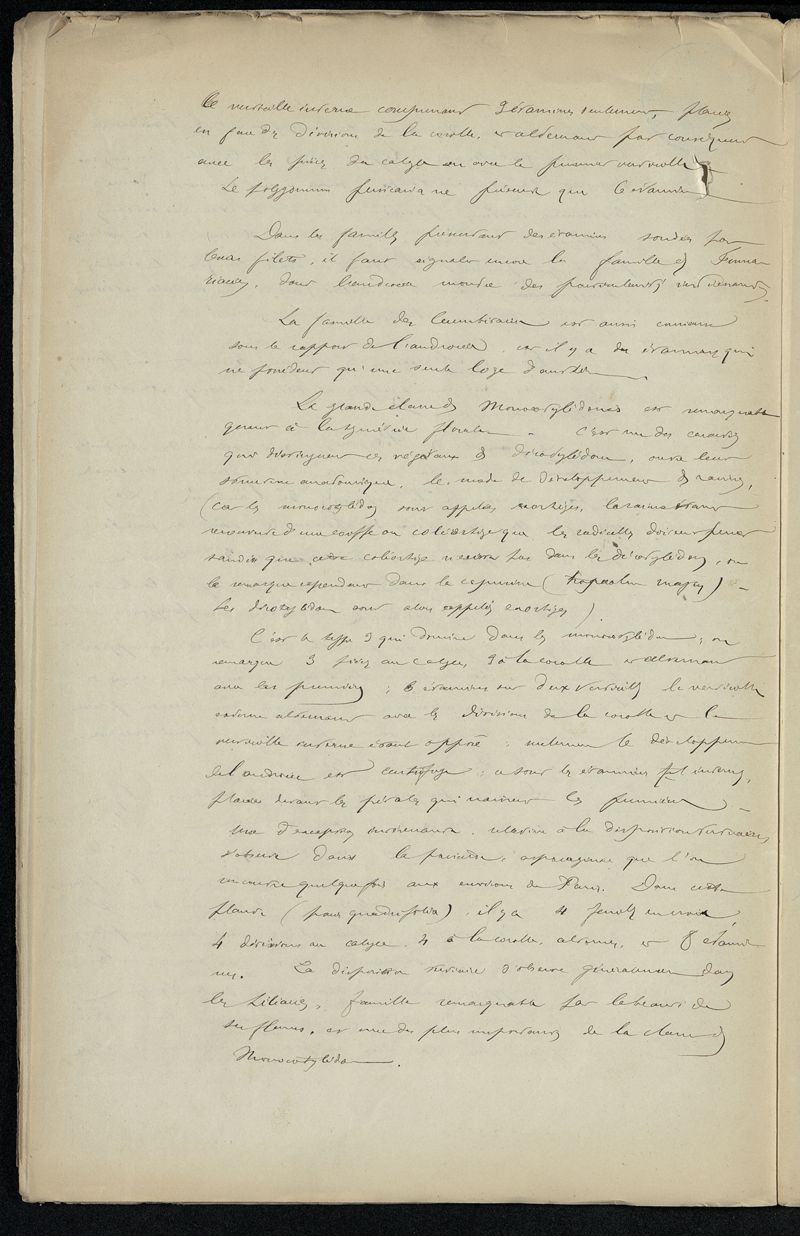 Le verticille interne comprenant 3 étamines seulement, placées
en face des divisions de la corolle, et alternant par conséquent
avec les pièces du calyce ou avec le premier verticille
Le polygonum persicaria ne présente que 6 étamines
Dans les familles présentant des étamines soudées par
leurs filets, il faut signaler encore la famille des Fumariacées
dont l'androcée montre des particularités
La famille des est aussi curieuse
sous le rapport de l'androcée, car il y a des étamines qui
ne possèdent qu'une seule loge d'anthère
La grande classe des Monocotylédones est remarquable
quant à la symétrie florale. C'est un des caractères
qui distinguent ces végétaux des dicotylédones, outre leur
structure anatomique, le mode de développement des racines,
(car les monocotylédones sont appelées
recouverte d'une coiffe ou coléorhize que les radicelles doivent percer
tandis que cette coléorhize n'existe pas dans les dicotylédones, on
le remarque cependant dans la capucine (tropaeolum majus) –
Les dicotylédones sont alors appelées exorhizes)
C'est le type 3 qui domine dans les monocotylédones; on
remarque 3 pièces au calyce, 3 à la corolle et alternant
avec les premières; 6 étamines sur deux verticilles le verticille
externe alternant avec les divisions de la corolle et le
verticille interne étant opposé; seulement le développement
de l'androcée est centrifuge; ce sont les étamines internes,
placées devant les pétales qui naissent les premières –
Une d'exception intéressante, relative à la disposition ternaire,
s'observe dans la parisette, asparaginée que l'on
rencontre quelquefois aux environs de Paris. Dans cette
plante (paris quadrifolia), il y a 4 feuilles en croix,
4 divisions au calyce, 4 à la corolle, alternes, et 8 étamines.
La disposition ternaire s'observe généralement dans
les Liliacées, famille remarquable par la beauté de
ses fleurs, et une des plus importantes de la classe des
Monocotylédones.